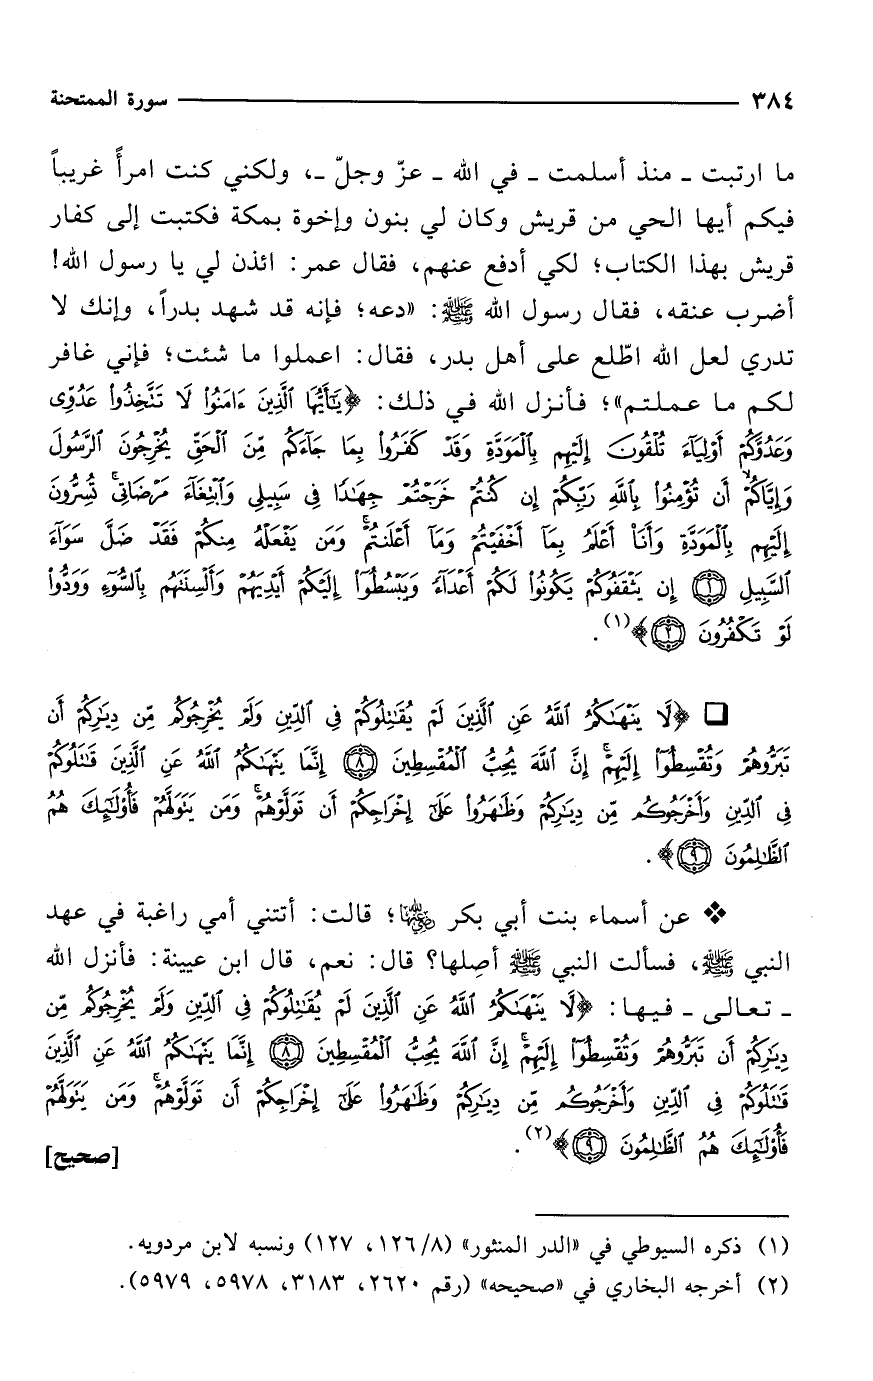 ٣٨٤ سورة الممتحنة
ما ارتبت ـ منذ أسلمت ـ في الله ـ عزّ وجلّ ـ، ولكني كنت امرأً غريباً
فيكم أيها الحي من قريش وكان لي بنون وإخوة بمكة فكتبت إلى كفار
قريش بهذا الكتاب؛ لكي أدفع عنهم، فقال عمر: ائذن لي يا رسول الله!
أضرب عنقه، فقال رسول الله ﷺ: «دعه؛ فإنه قد شهد بدراً، وإنك لا
تدري لعل الله اطّلع على أهل بدر، فقال: اعملوا ما شئت؛ فإني غافر
لكم ما عملتم»؛ فأنزل الله في ذلك: ﴿يَٰٓأَيُّهَا ٱلَّذِينَ ءَامَنُوا۟ لَا تَتَّخِذُوا۟ عَدُوِّى
وَعَدُوَّكُمْ أَوْلِيَآءَ تُلْقُونَ إِلَيْهِم بِٱلْمَوَدَّةِ وَقَدْ كَفَرُوا۟ بِمَا جَآءَكُم مِّنَ ٱلْحَقِّ يُخْرِجُونَ ٱلرَّسُولَ
وَإِيَّاكُمْ ۙ أَن تُؤْمِنُوا۟ بِٱللَّهِ رَبِّكُمْ إِن كُنتُمْ خَرَجْتُمْ جِهَٰدًا فِى سَبِيلِى وَٱبْتِغَآءَ مَرْضَاتِى ۚ تُسِرُّونَ
إِلَيْهِم بِٱلْمَوَدَّةِ وَأَنَا۠ أَعْلَمُ بِمَآ أَخْفَيْتُمْ وَمَآ أَعْلَنتُمْ ۚ وَمَن يَفْعَلْهُ مِنكُمْ فَقَدْ ضَلَّ سَوَآءَ
ٱلسَّبِيلِ ١ إِن يَثْقَفُوكُمْ يَكُونُوا۟ لَكُمْ أَعْدَآءً وَيَبْسُطُوٓا۟ إِلَيْكُمْ أَيْدِيَهُمْ وَأَلْسِنَتَهُم بِٱلسُّوٓءِ وَوَدُّوا۟
لَوْ تَكْفُرُونَ ٢﴾(١).
❑ ﴿لَّا يَنْهَىٰكُمُ ٱللَّهُ عَنِ ٱلَّذِينَ لَمْ يُقَٰتِلُوكُمْ فِى ٱلدِّينِ وَلَمْ يُخْرِجُوكُم مِّن دِيَٰرِكُمْ أَن
تَبَرُّوهُمْ وَتُقْسِطُوٓا۟ إِلَيْهِمْ ۚ إِنَّ ٱللَّهَ يُحِبُّ ٱلْمُقْسِطِينَ ٨ إِنَّمَا يَنْهَىٰكُمُ ٱللَّهُ عَنِ ٱلَّذِينَ قَٰتَلُوكُمْ
فِى ٱلدِّينِ وَأَخْرَجُوكُم مِّن دِيَٰرِكُمْ وَظَٰهَرُوا۟ عَلَىٰٓ إِخْرَاجِكُمْ أَن تَوَلَّوْهُمْ ۚ وَمَن يَتَوَلَّهُمْ فَأُو۟لَٰٓئِكَ هُمُ
ٱلظَّٰلِمُونَ ٩﴾.
❖ عن أسماء بنت أبي بكر رضي الله عنها؛ قالت: أتتني أمي راغبة في عهد
النبي ﷺ، فسألت النبي ﷺ أصلها؟ قال: نعم، قال ابن عيينة: فأنزل الله
ـ تعالى ـ فيها: ﴿لَّا يَنْهَىٰكُمُ ٱللَّهُ عَنِ ٱلَّذِينَ لَمْ يُقَٰتِلُوكُمْ فِى ٱلدِّينِ وَلَمْ يُخْرِجُوكُم مِّن
دِيَٰرِكُمْ أَن تَبَرُّوهُمْ وَتُقْسِطُوٓا۟ إِلَيْهِمْ ۚ إِنَّ ٱللَّهَ يُحِبُّ ٱلْمُقْسِطِينَ ٨ إِنَّمَا يَنْهَىٰكُمُ ٱللَّهُ عَنِ ٱلَّذِينَ
قَٰتَلُوكُمْ فِى ٱلدِّينِ وَأَخْرَجُوكُم مِّن دِيَٰرِكُمْ وَظَٰهَرُوا۟ عَلَىٰٓ إِخْرَاجِكُمْ أَن تَوَلَّوْهُمْ ۚ وَمَن يَتَوَلَّهُمْ
فَأُو۟لَٰٓئِكَ هُمُ ٱلظَّٰلِمُونَ ٩﴾(٢). [صحيح]
(١) ذكره السيوطي في «الدر المنثور» (٨/١٢٦، ١٢٧) ونسبه لابن مردويه.
(٢) أخرجه البخاري في «صحيحه» (رقم ٢٦٢٠، ٣١٨٣، ٥٩٧٨، ٥٩٧٩).